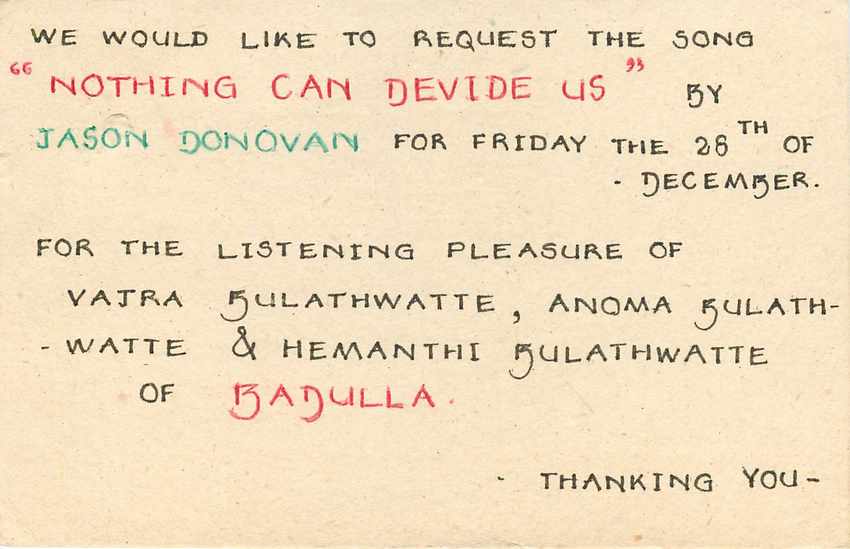 WE WOULD LIKE TO REQUEST THE SONG
"NOTHING CAN DEVIDE US" BY
JASON DONOVAN FOR FRIDAY THE 28TH OF
- DECEMBER.
FOR THE LISTENING PLEASURE OF
VAJRA BULATHWATTE, ANOMA BULATH-
- WATTE & HEMANTHI BULATHWATTE
OF BADULLA.
- THANKING YOU -